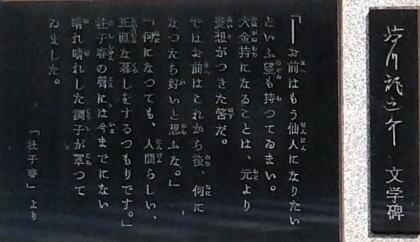 芥川龍之介 文学碑
「――お前はもう仙人になりたい
といふ望も持つてゐまい。
大金持になることは、元より
愛想がつきた筈だ。
ではお前はこれから後、何に
なつたら好いと思ふな。」
「何になつても、人間らしい、
正直な暮しをするつもりです。」
杜子春の聲には今までにない
晴れ晴れした調子が罩つて
ゐました。
「杜子春」より